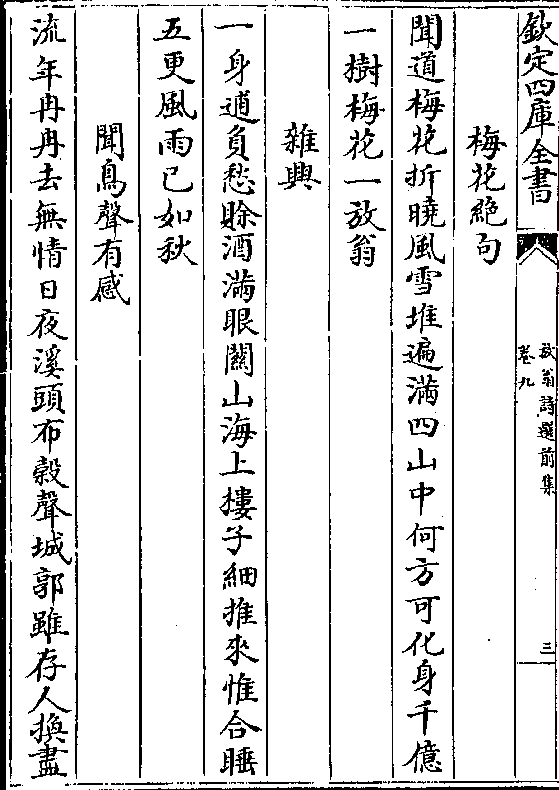 欽定四庫全書
放翁詩選前集
卷九
三
梅花絶句
聞道梅花折曉風雪堆遍滿四山中何方可化身千億
一樹梅花一放翁
雜興
一身逋負愁賒酒滿眼關山海上樓子細推來惟合睡
五更風雨已如秋
聞鳥聲有感
流年冉冉去無情日夜溪頭布榖聲城郭雖存人換盡